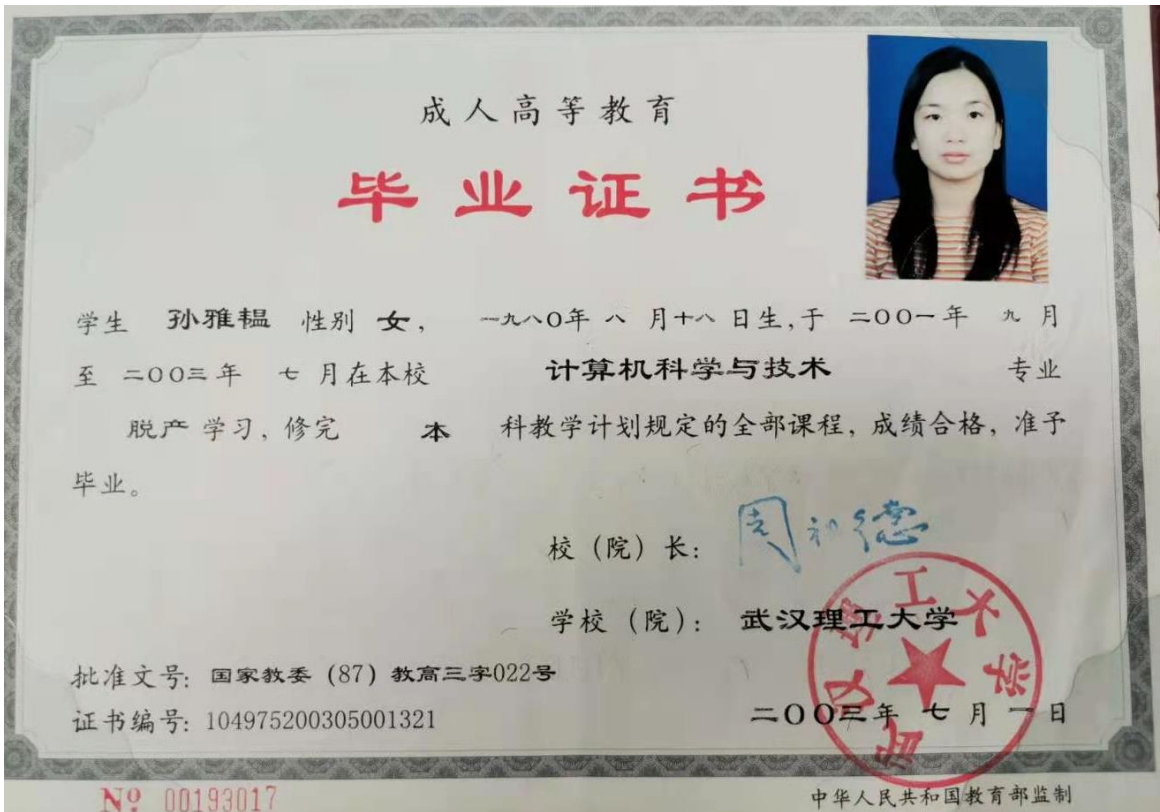 成人高等教育
毕业证书
学生 孙雅韫 性别 女, 一九八〇年 八 月十八 日生,于 二〇〇一年 九 月
至 二〇〇三年 七 月在本校 计算机科学与技术 专业
脱产 学习, 修完 本 科教学计划规定的全部课程, 成绩合格, 准予
毕业。
校 (院) 长: 周祖德
学校 (院): 武汉理工大学
武汉理工大学
批准文号: 国家教委 (87) 教高三字022号
证书编号: 104975200305001321
二〇〇三年 七 月 一 日
№ 00193017
中华人民共和国教育部监制